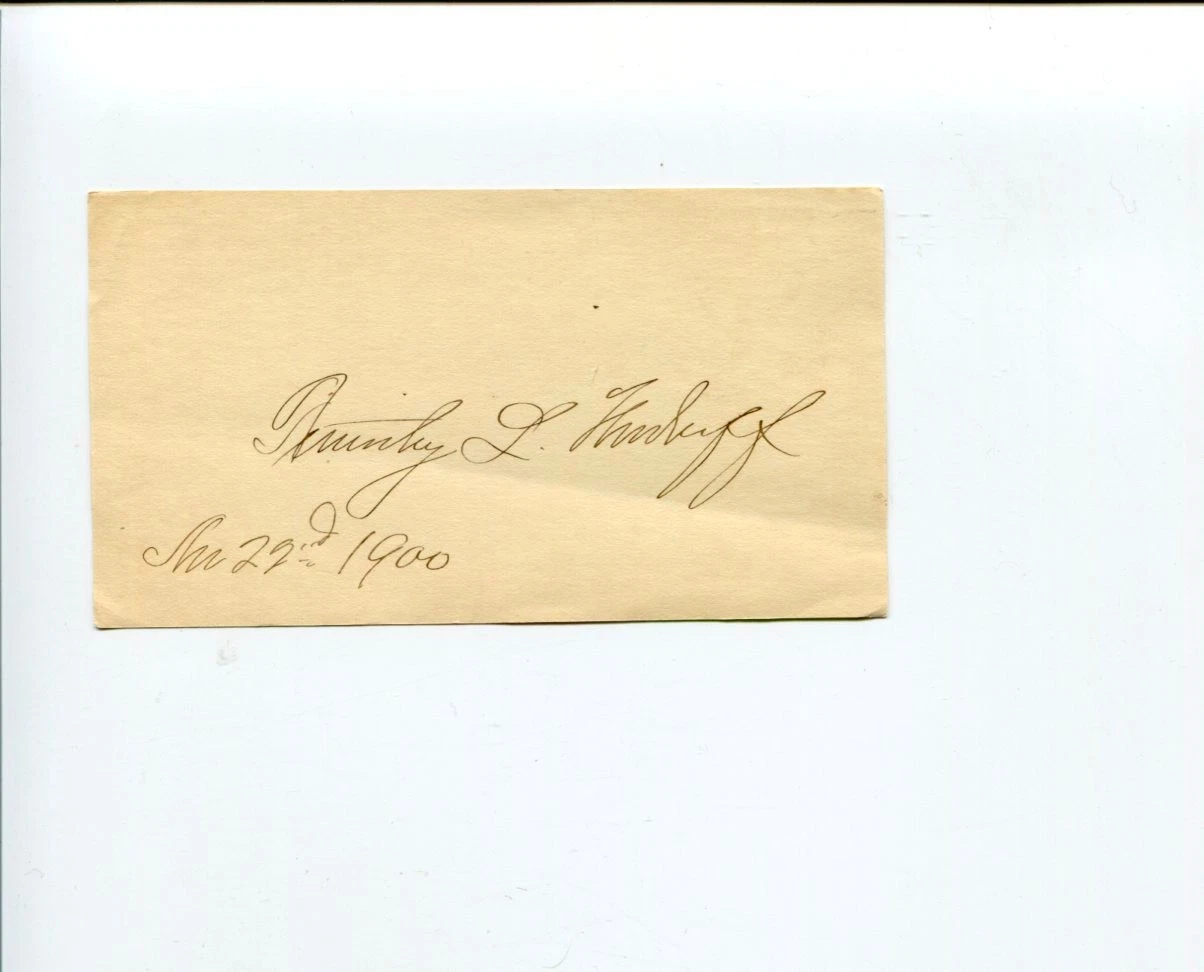 Timothy L. Woodruff
Nov 22nd 1900